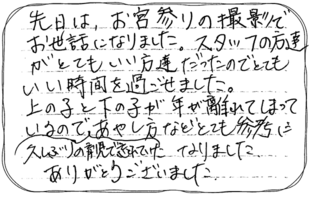 先日は、お宮参りの撮影で
お世話になりました。スタッフの方達
がとてもいい方達だったのでとても
いい時間を過ごせました。
上の子と下の子が年が離れてしまって
いるので、あやし方などとても参考に
久しぶりの育児で忘れてた なりました
ありがとうございました。